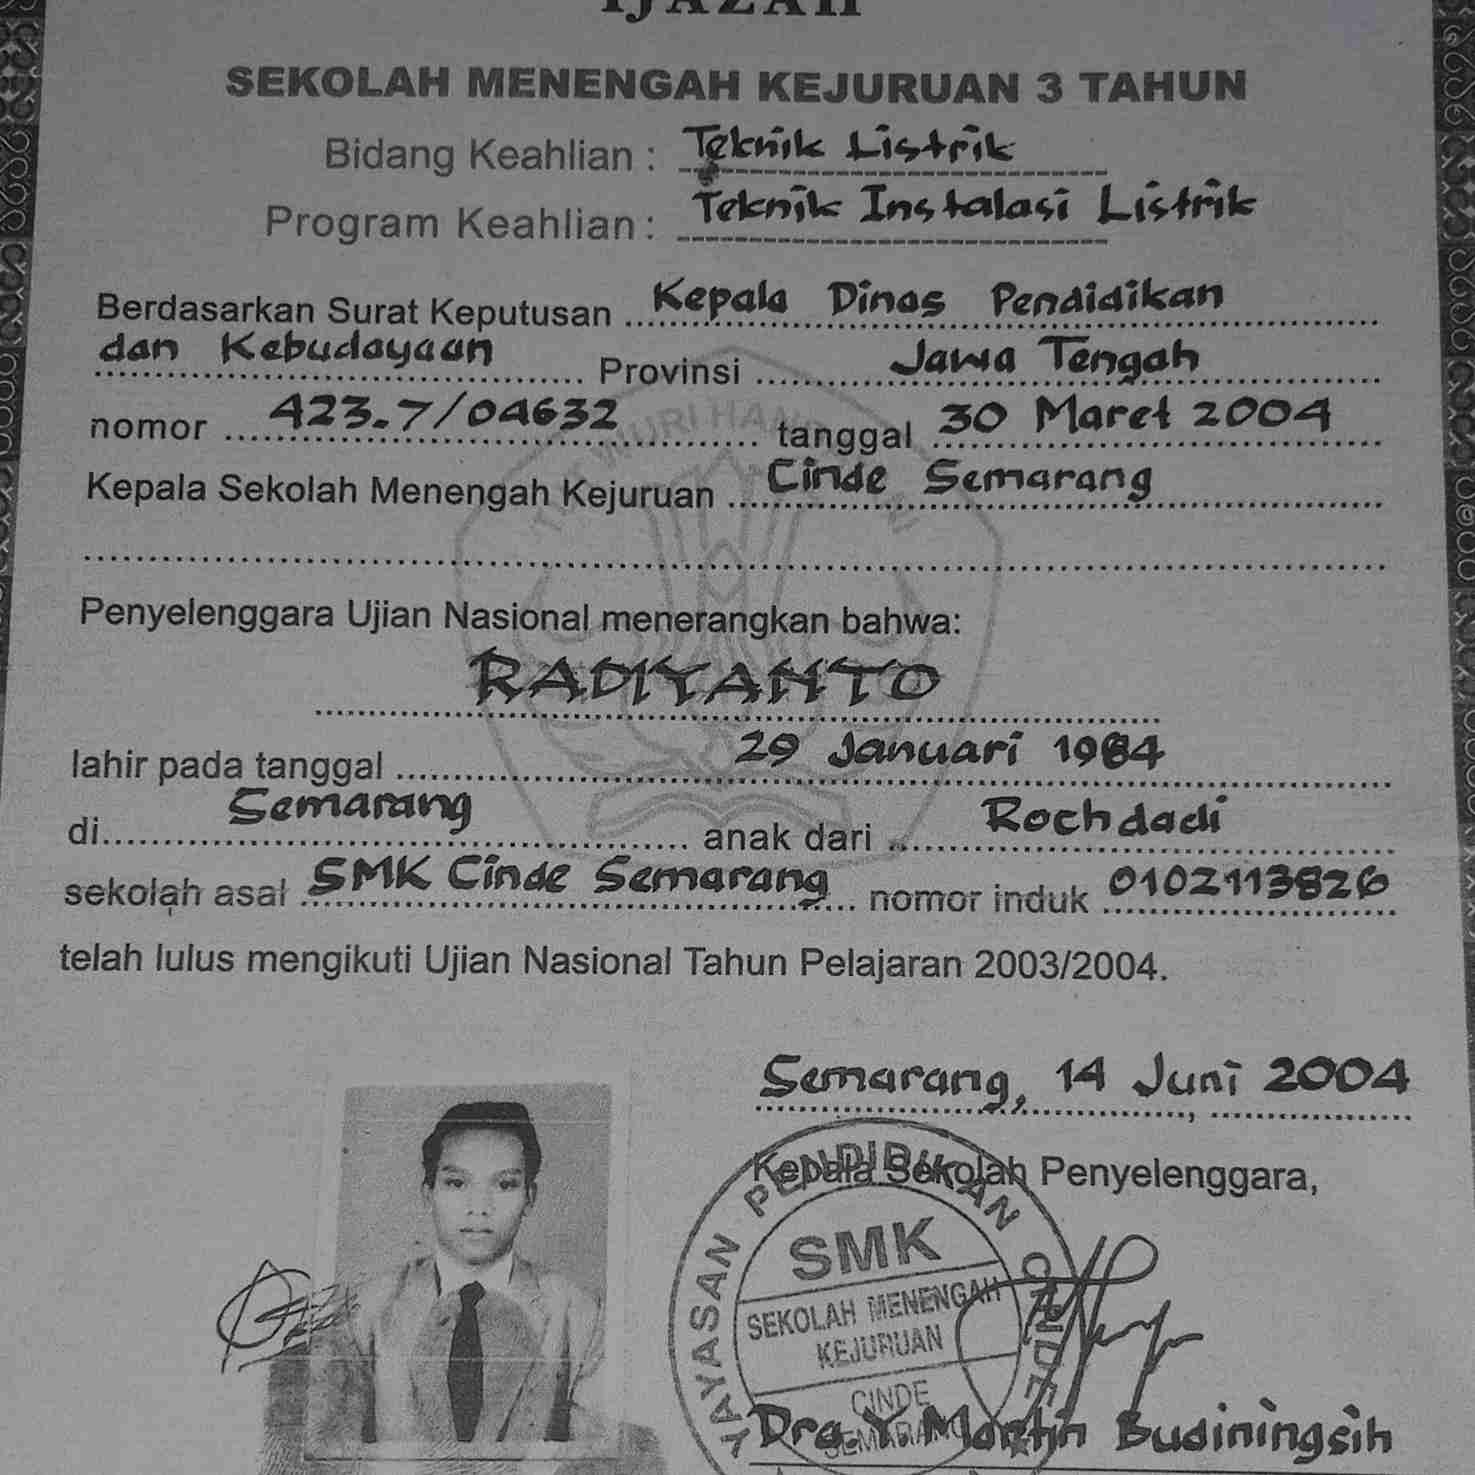 IJAZAH
SEKOLAH MENENGAH KEJURUAN 3 TAHUN
Bidang Keahlian : Teknik Listrik
Program Keahlian : Teknik Instalasi Listrik
Berdasarkan Surat Keputusan Kepala Dinas Pendidikan
dan Kebudayaan Provinsi Jawa Tengah
nomor 423.7/04632 tanggal 30 Maret 2004
Kepala Sekolah Menengah Kejuruan Cinde Semarang
Penyelenggara Ujian Nasional menerangkan bahwa:
RADIYANTO
lahir pada tanggal 29 Januari 1984
di Semarang anak dari Rochdadi
sekolah asal SMK Cinde Semarang nomor induk 0102113826
telah lulus mengikuti Ujian Nasional Tahun Pelajaran 2003/2004.
Semarang, 14 Juni 2004
Kepala Sekolah Penyelenggara,
YAYASAN PENDIDIKAN CINDE
SMK
SEKOLAH MENENGAH
KEJURUAN
CINDE
SEMARANG
Dra. Y. Martin Budiningsih